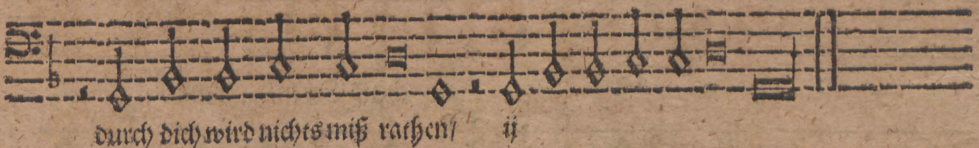 durch dich wird nichts miß rathen/ ij